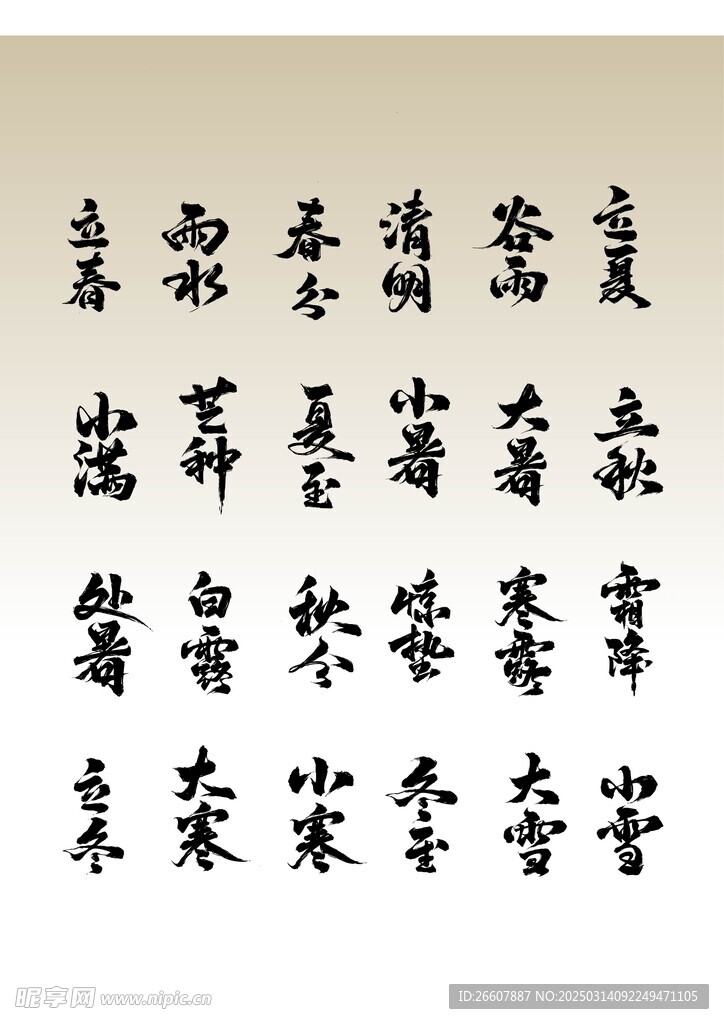 立春 雨水 春分 清明 谷雨 立夏
小满 芒种 夏至 小暑 大暑 立秋
处暑 白露 秋分 惊蛰 寒露 霜降
立冬 大寒 小寒 冬至 大雪 小雪
昵享网 www.nipic.cn
ID:26607887 NO:20250314092249471105